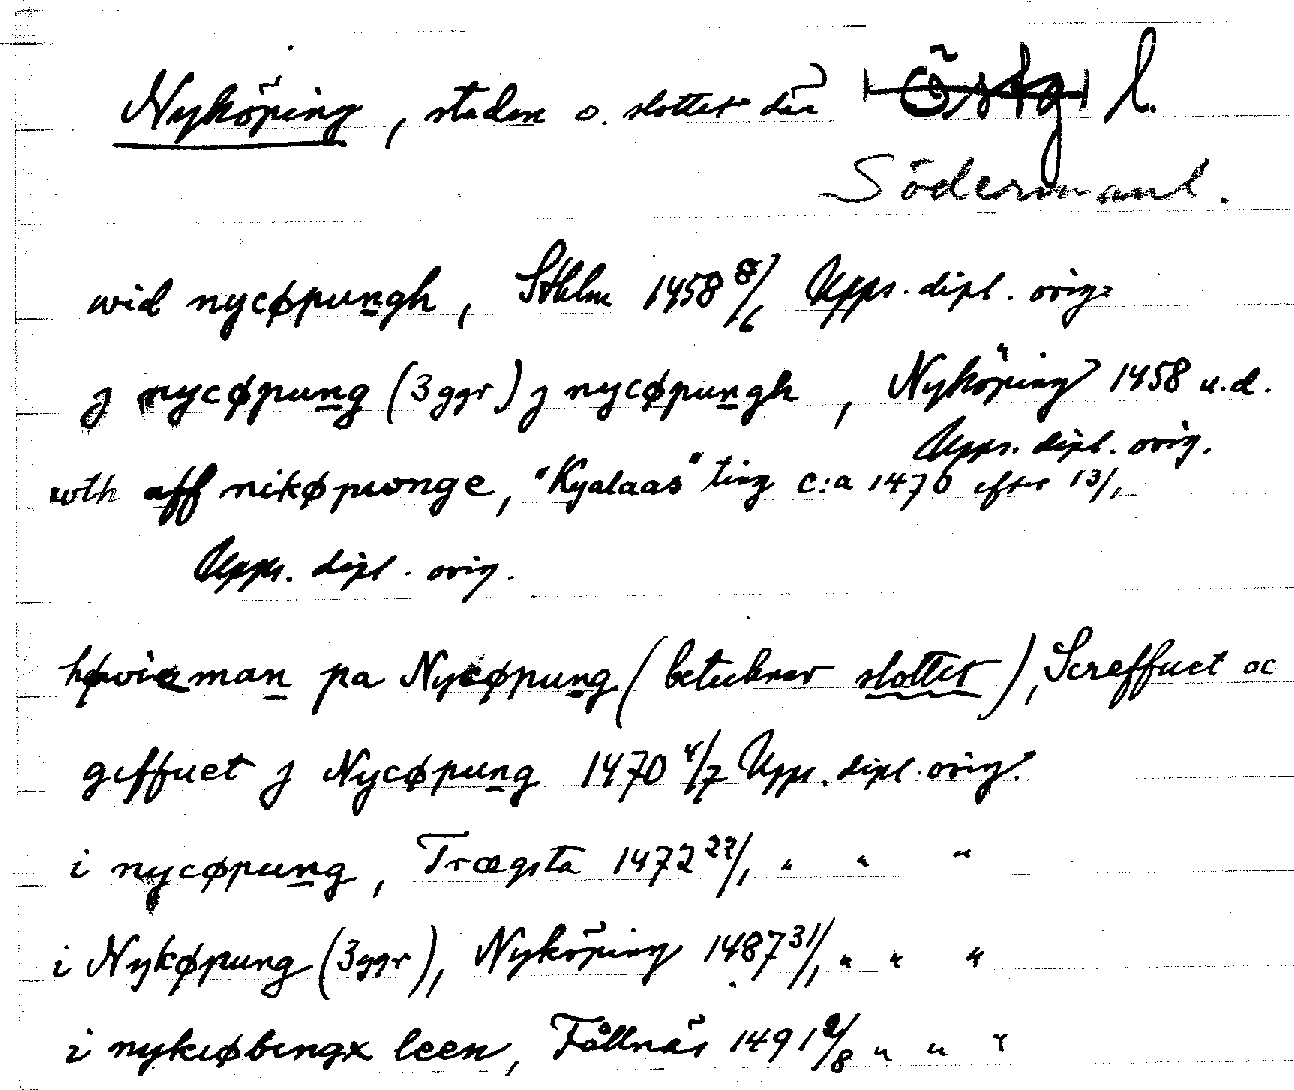 Nyköping, staden o. slottet där Östg l.
Södermanl.
wid nycøpungh, Sthlm 1458 8/6 Upps. dipl. orig.
j nycøpung (3 ggr) j nycøpungh, Nyköping 1458 u.d.
Upps. dipl. orig.
wth aff nikøpwnge, "Kyalaas" ting c:a 1470 efter 13/1
Upps. dipl. orig.
høwizman pa Nycøpung (betecknar slottet), Screffuet oc
giffuet j Nycøpung 1470 4/7 Upps. dipl. orig.
i nycøpung, Trægsta 1472 22/1 " " "
i Nykøpung (3 ggr), Nyköping 1487 31/1 " " "
i nykiøbingx leen, Fållnäs 1491 9/8 " " "